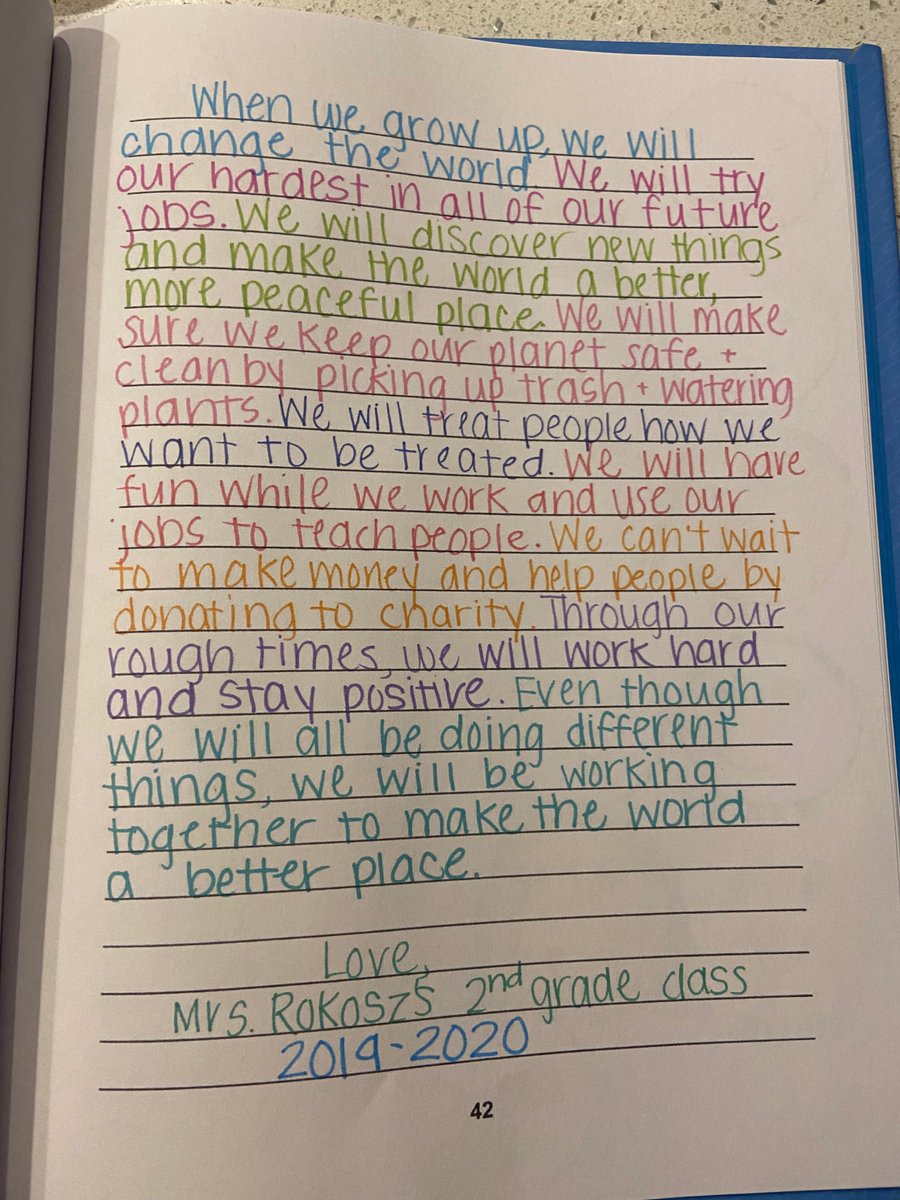 When we grow up, we will
change the world. We will try
our hardest in all of our future
jobs. We will discover new things
and make the world a better,
more peaceful place. We will make
sure we keep our planet safe +
clean by picking up trash + watering
plants. We will treat people how we
want to be treated. We will have
fun while we work and use our
jobs to teach people. We can't wait
to make money and help people by
donating to charity. Through our
rough times, we will work hard
and stay positive. Even though
we will all be doing different
things, we will be working
together to make the world
a better place.
Love,
Mrs. Rokosz's 2nd grade class
2019-2020
42